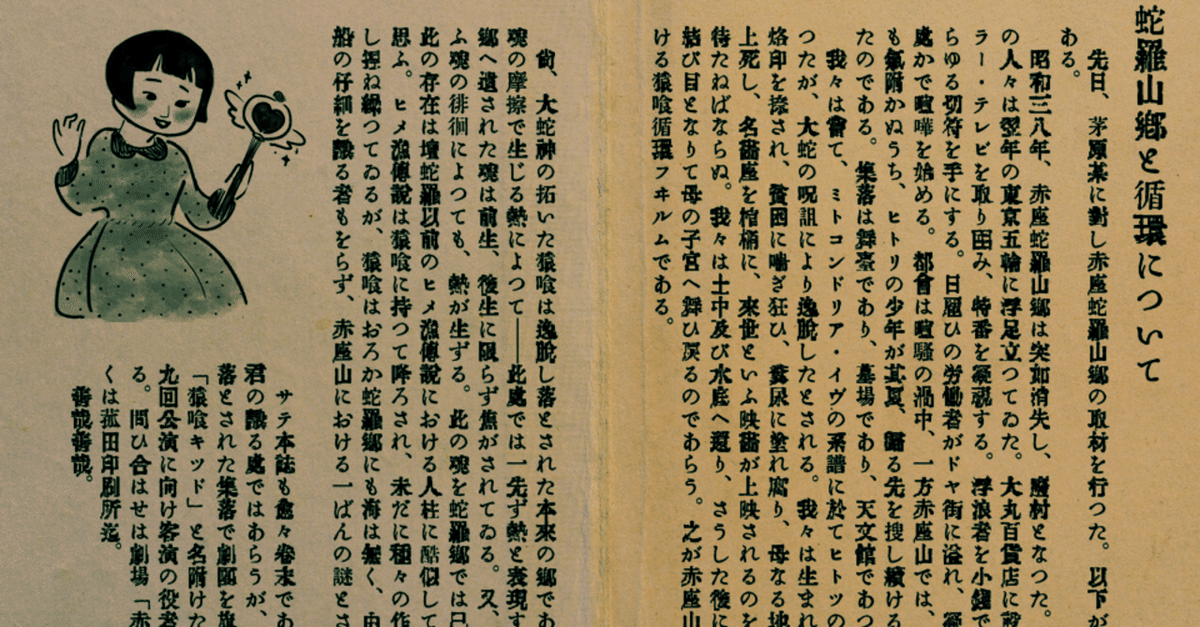 蛇羅山鄕と循環について
先日、茅原某に對し赤座蛇羅山鄕の取材を行つた。以下が
ある。
昭和三八年、赤座蛇羅山鄕は突如消失し、廢村となつた。
の人々は翌年の東京五輪に浮足立つてゐた。大丸百貨店に設
ラー・テレビを取り囲み、特番を凝視する。浮浪者を小錢で
らゆる切符を手にする。日雇ひの労働者がドヤ街に溢れ、
處かで喧嘩を始める。都會は喧騒の渦中、一方赤座山では、
も氣附かぬうち、ヒトリの少年が其夏、踊る先を捜し續ける
たのである。集落は舞臺であり、墓場であり、天文館であつ
我々は嘗て、ミトコンドリア・イヴの系譜に於てヒトツの
つたが、大蛇の呪詛により逸脫したとされる。我々は生まれ
烙印を捺され、貧困に喘ぎ狂ひ、糞尿に塗れ腐り、母なる地
上死し、名畵座を棺桶に、來世といふ映畵が上映されるのを
待たねばならぬ。我々は土中及び水底へ還り、さうした後に
結び目となりて母の子宮へ舞ひ戾るのであらう。之が赤座山
ける猿喰循環フヰルムである。
尙、大蛇神の拓いた猿喰は逸脫し落とされた本來の鄕であ
魂の摩擦で生じる熱によつて――此處では一先ず熱と表現す
鄕へ遺された魂は前生、後生に限らず焦がされてゐる。又、
ふ魂の徘徊によつても、熱が生ずる。此の魂を蛇羅鄕では己
此の存在は壇蛇羅以前のヒメ漁傳說における人柱に酷似して
思ふ。ヒメ漁傳說は猿喰に持つて降ろされ、未だに種々の作
し捏ね繰つてゐるが、猿喰はおろか蛇羅鄕にも海は無く、由
船の仔細を識る者もをらず、赤座山における一ばんの謎とさ
サテ本誌も愈々卷末であ
君の識る處ではあらうが、
落とされた集落で劇團を旗
「猿喰キッド」と名附けた
九回公演に向け客演の役者
る。問ひ合はせは劇場「赤
くは菰田印刷所迄。
善哉善哉。